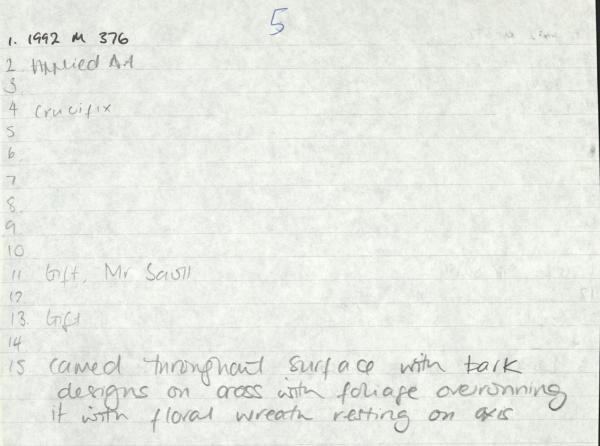 5
1. 1992 M 376
2 Applied Art
3
4 Crucifix
5
6.
7
8.
9
10
11 Gift, Mr
12.
13. Gift
14
15 carved throughout surface with bark
designs on cross with foliage overrunning
it with floral wreath resting on axis